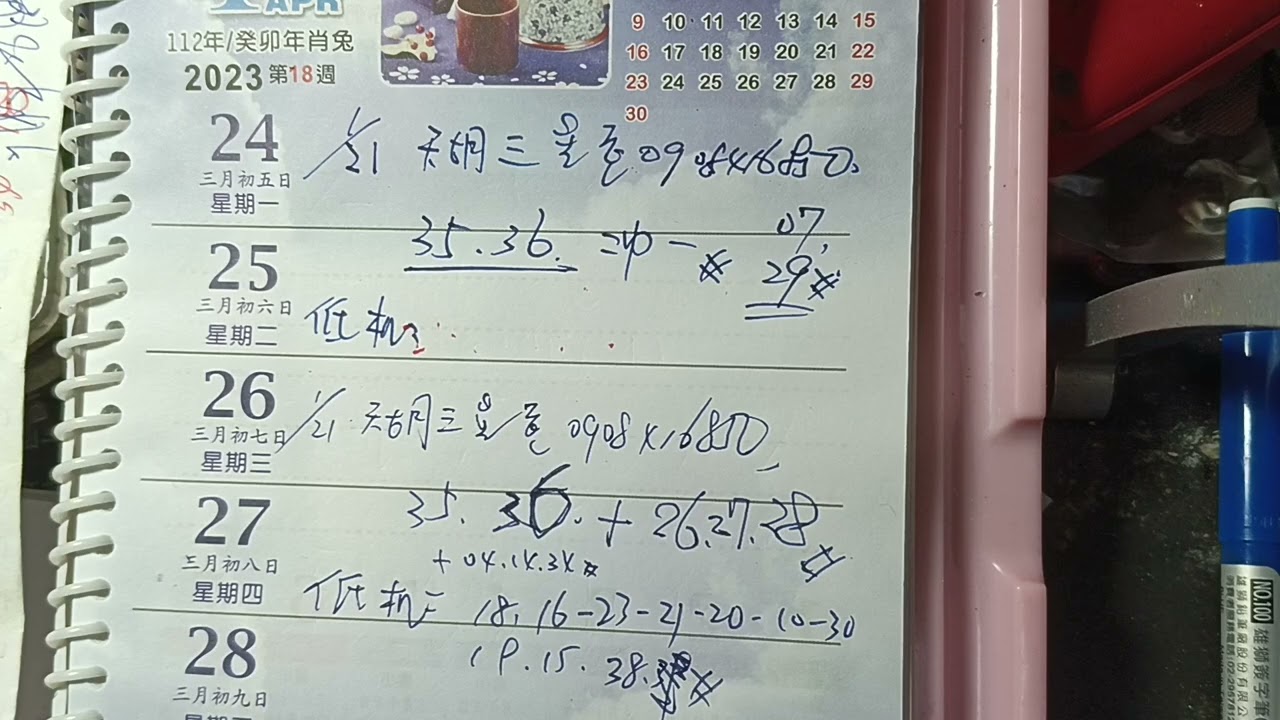 APR
9 10 11 12 13 14 15
112年/癸卯年肖兔
16 17 18 19 20 21 22
2023 第18週
23 24 25 26 27 28 29
30
24
三月初五日
星期一
1/21 天胡三星 0908416850
35.36. 二中一 07.
29
25
三月初六日
星期二
低机
26
三月初七日
星期三
1/21 天胡三星 0908×16850
27
三月初八日
星期四
35. 36. + 26.27.28
+ 04.14.34
低机= 18. 16-23-21-20-10-30
19. 15. 38.
28
三月初九日
NO.100